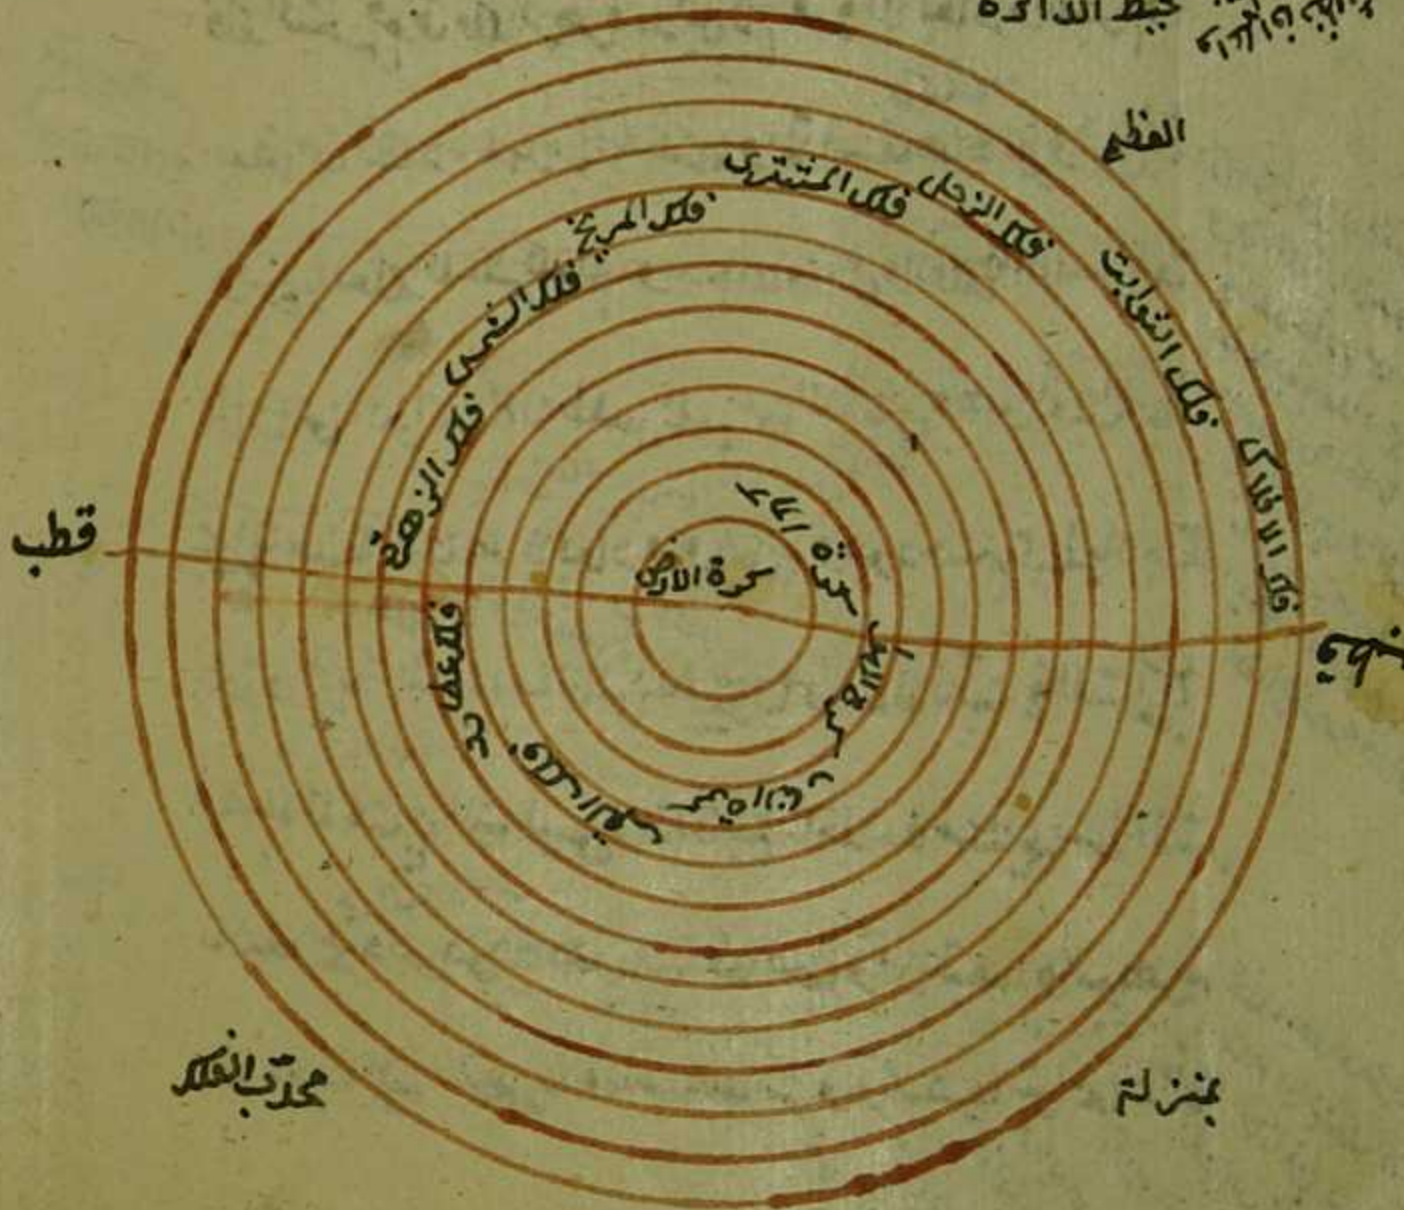 محيط الدائرة
العظم
فلك الافلاك
فلك الثوابت
فلك الزحل
فلك المشترى
فلك المريخ
فلك الشمس
فلك الزهرة
فلك عطارد
فلك القمر
كرة النار
كرة الهواء
كرة الماء
كرة الارض
قطب
محدّب الفلك
بمنزلة